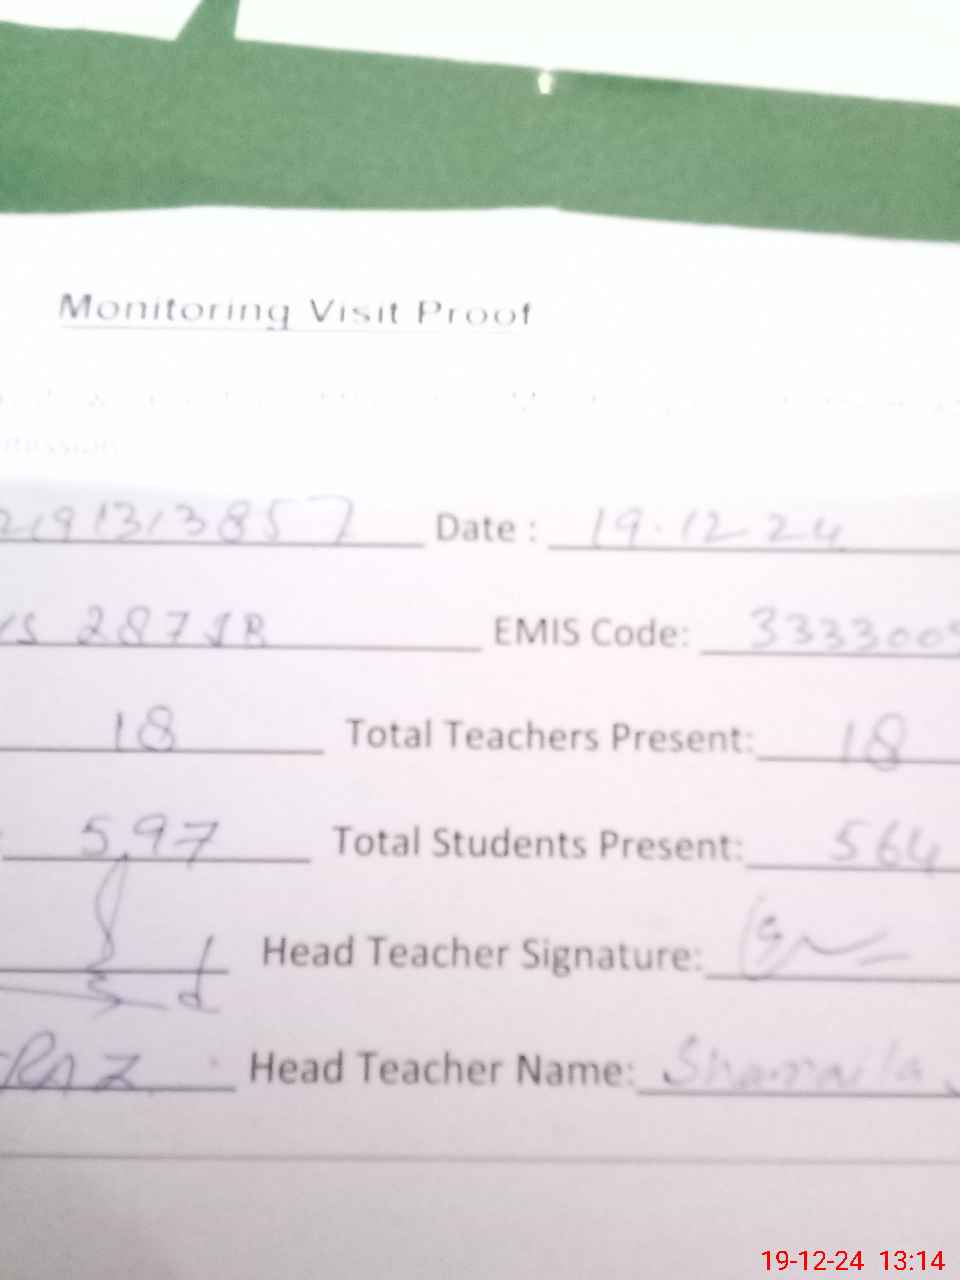 Monitoring Visit Proof
219313857 Date : 19.12 24
287 JB EMIS Code: 333300
18 Total Teachers Present: 18
597 Total Students Present: 564
Head Teacher Signature:
RAZ Head Teacher Name: Shamaila
19-12-24 13:14